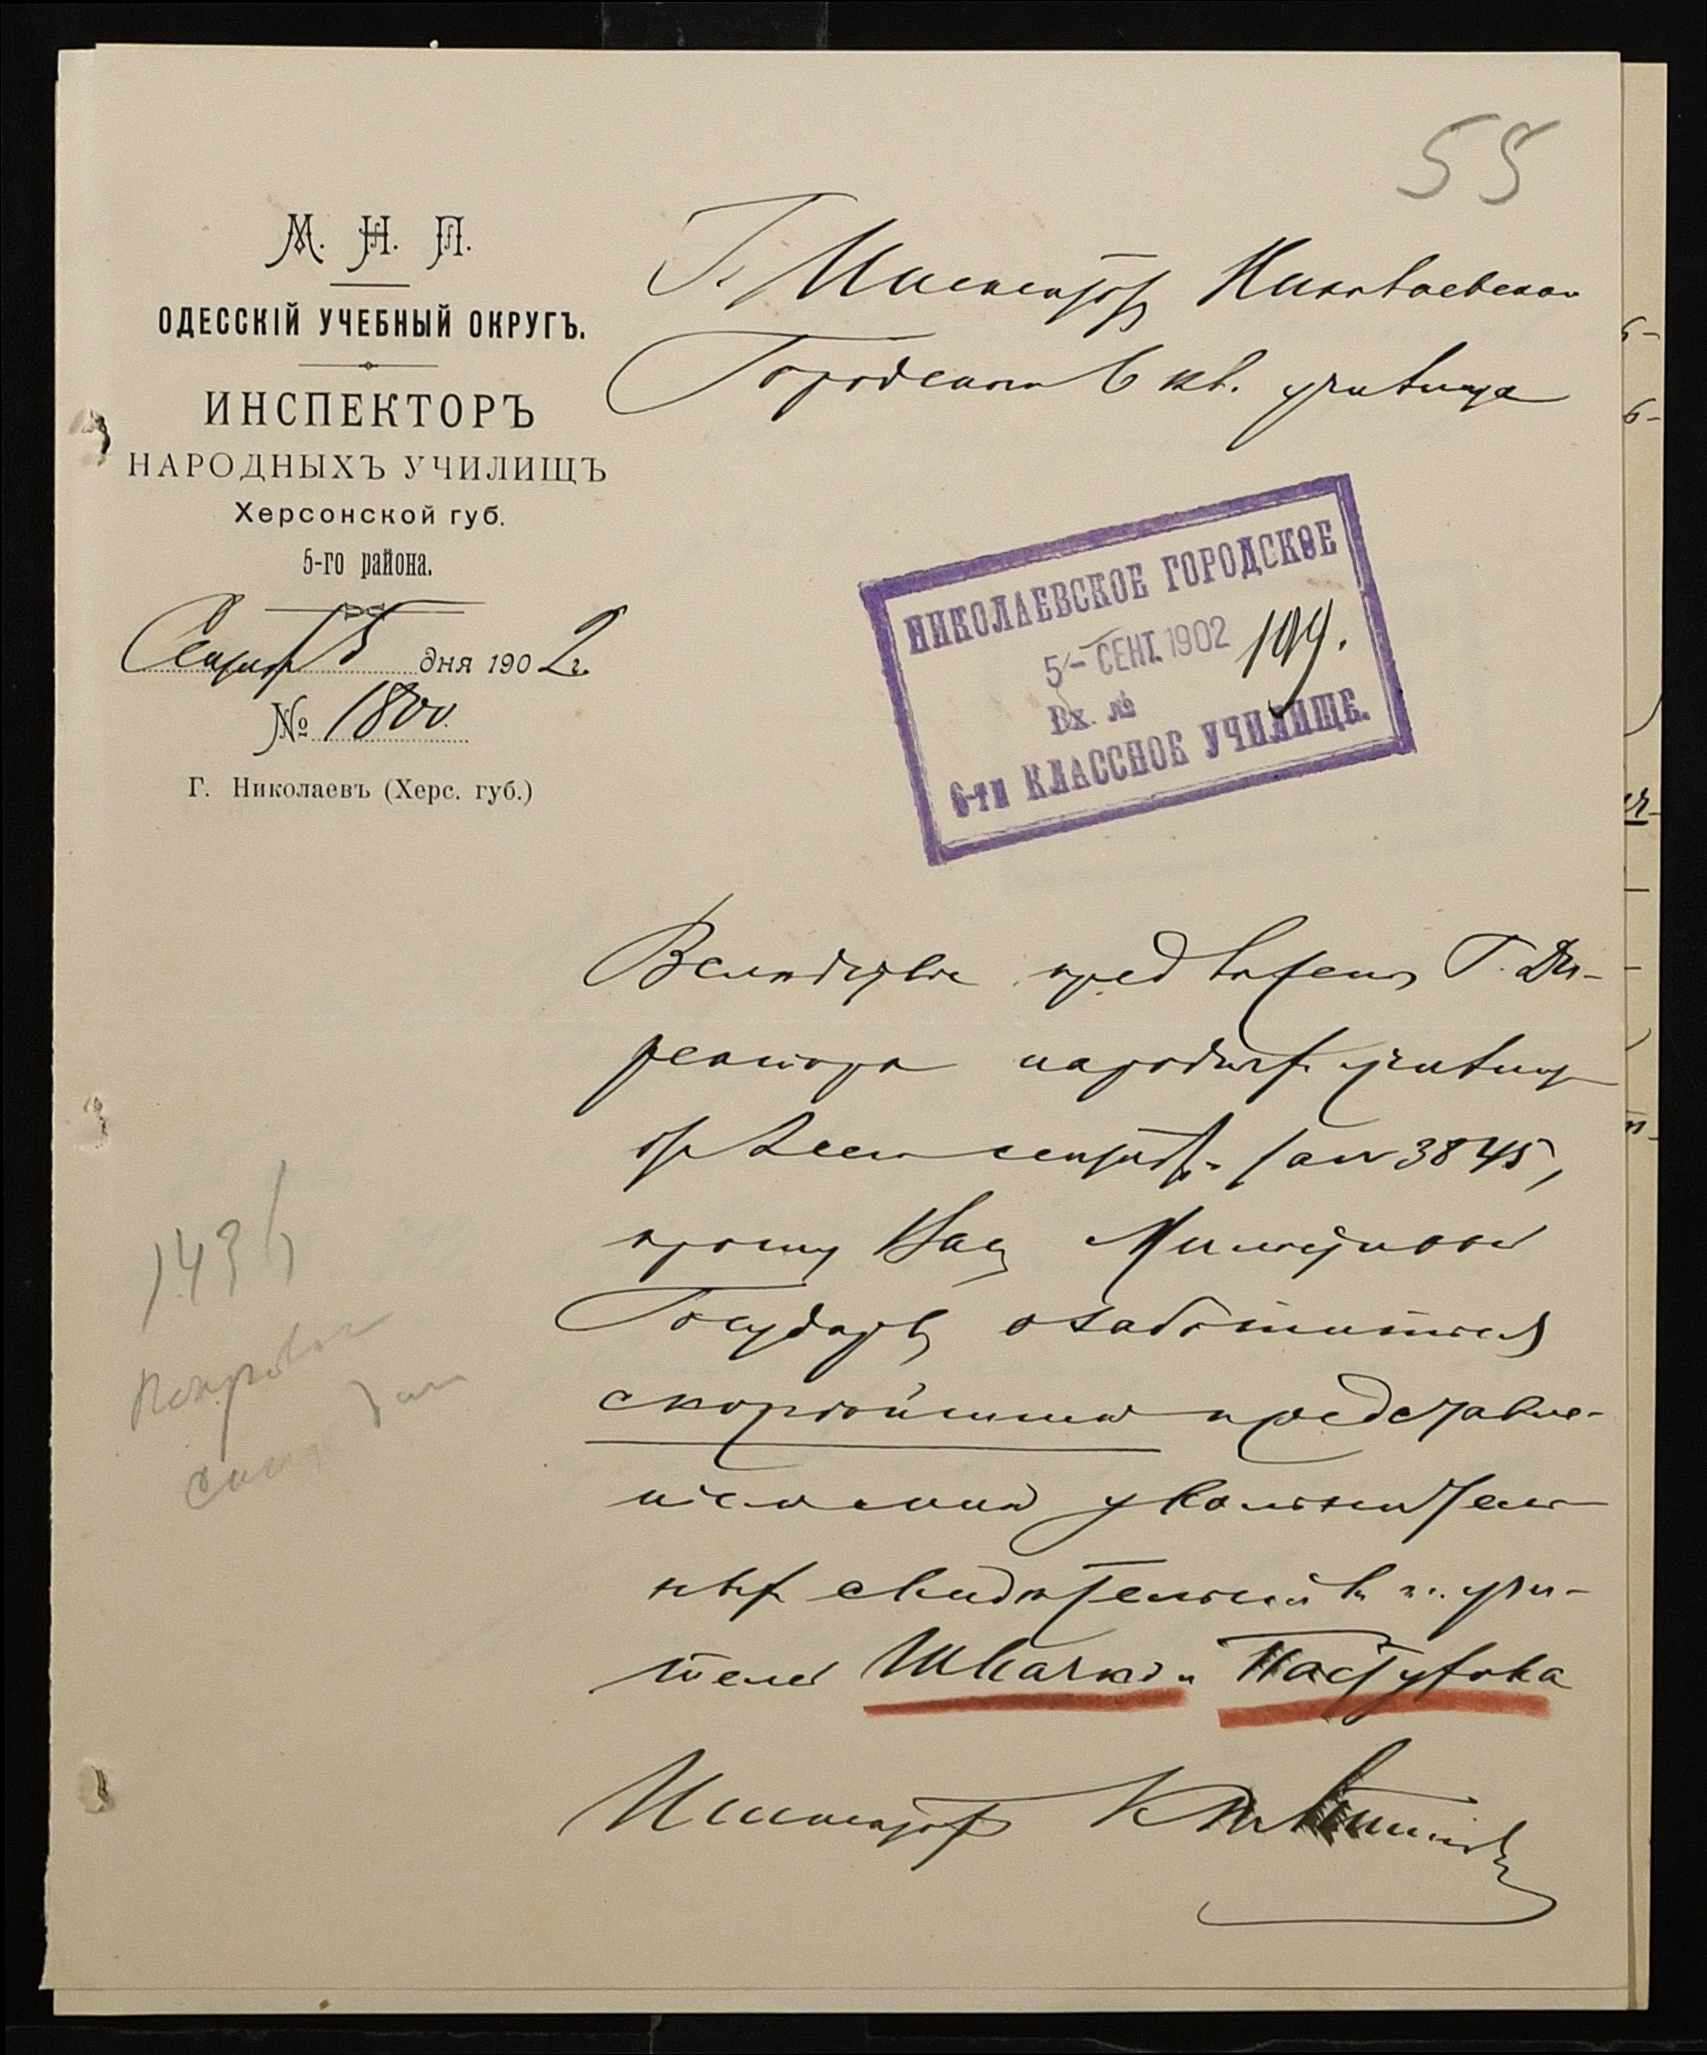 55
М. Н. П.
ОДЕССКІЙ УЧЕБНЫЙ ОКРУГЪ.
ИНСПЕКТОРЪ
НАРОДНЫХЪ УЧИЛИЩЪ
Херсонской губ.
5-го района.
Сентяб 5 дня 1902 г.
№ 1800
Г. Николаевъ (Херс. губ.)
Г. Инспектору Николаевскаго
Городского 6 кл. училища
НИКОЛАЕВСКОЕ ГОРОДСКОЕ
5 - СЕНТ. 1902
Вх. № 199.
6-ти КЛАССНОЕ УЧИЛИЩЕ.
Вслѣдствіе предложенія Г. Ди-
ректора народныхъ училищъ
отъ сентября за № 3845,
прошу Васъ Милостивый
Государь озаботиться
скорѣйшимъ представле-
ніемъ увольнитель
ныхъ свидѣтельствъ г.г. учи-
телей Швачки и Пастухова
Инспекторъ
1436